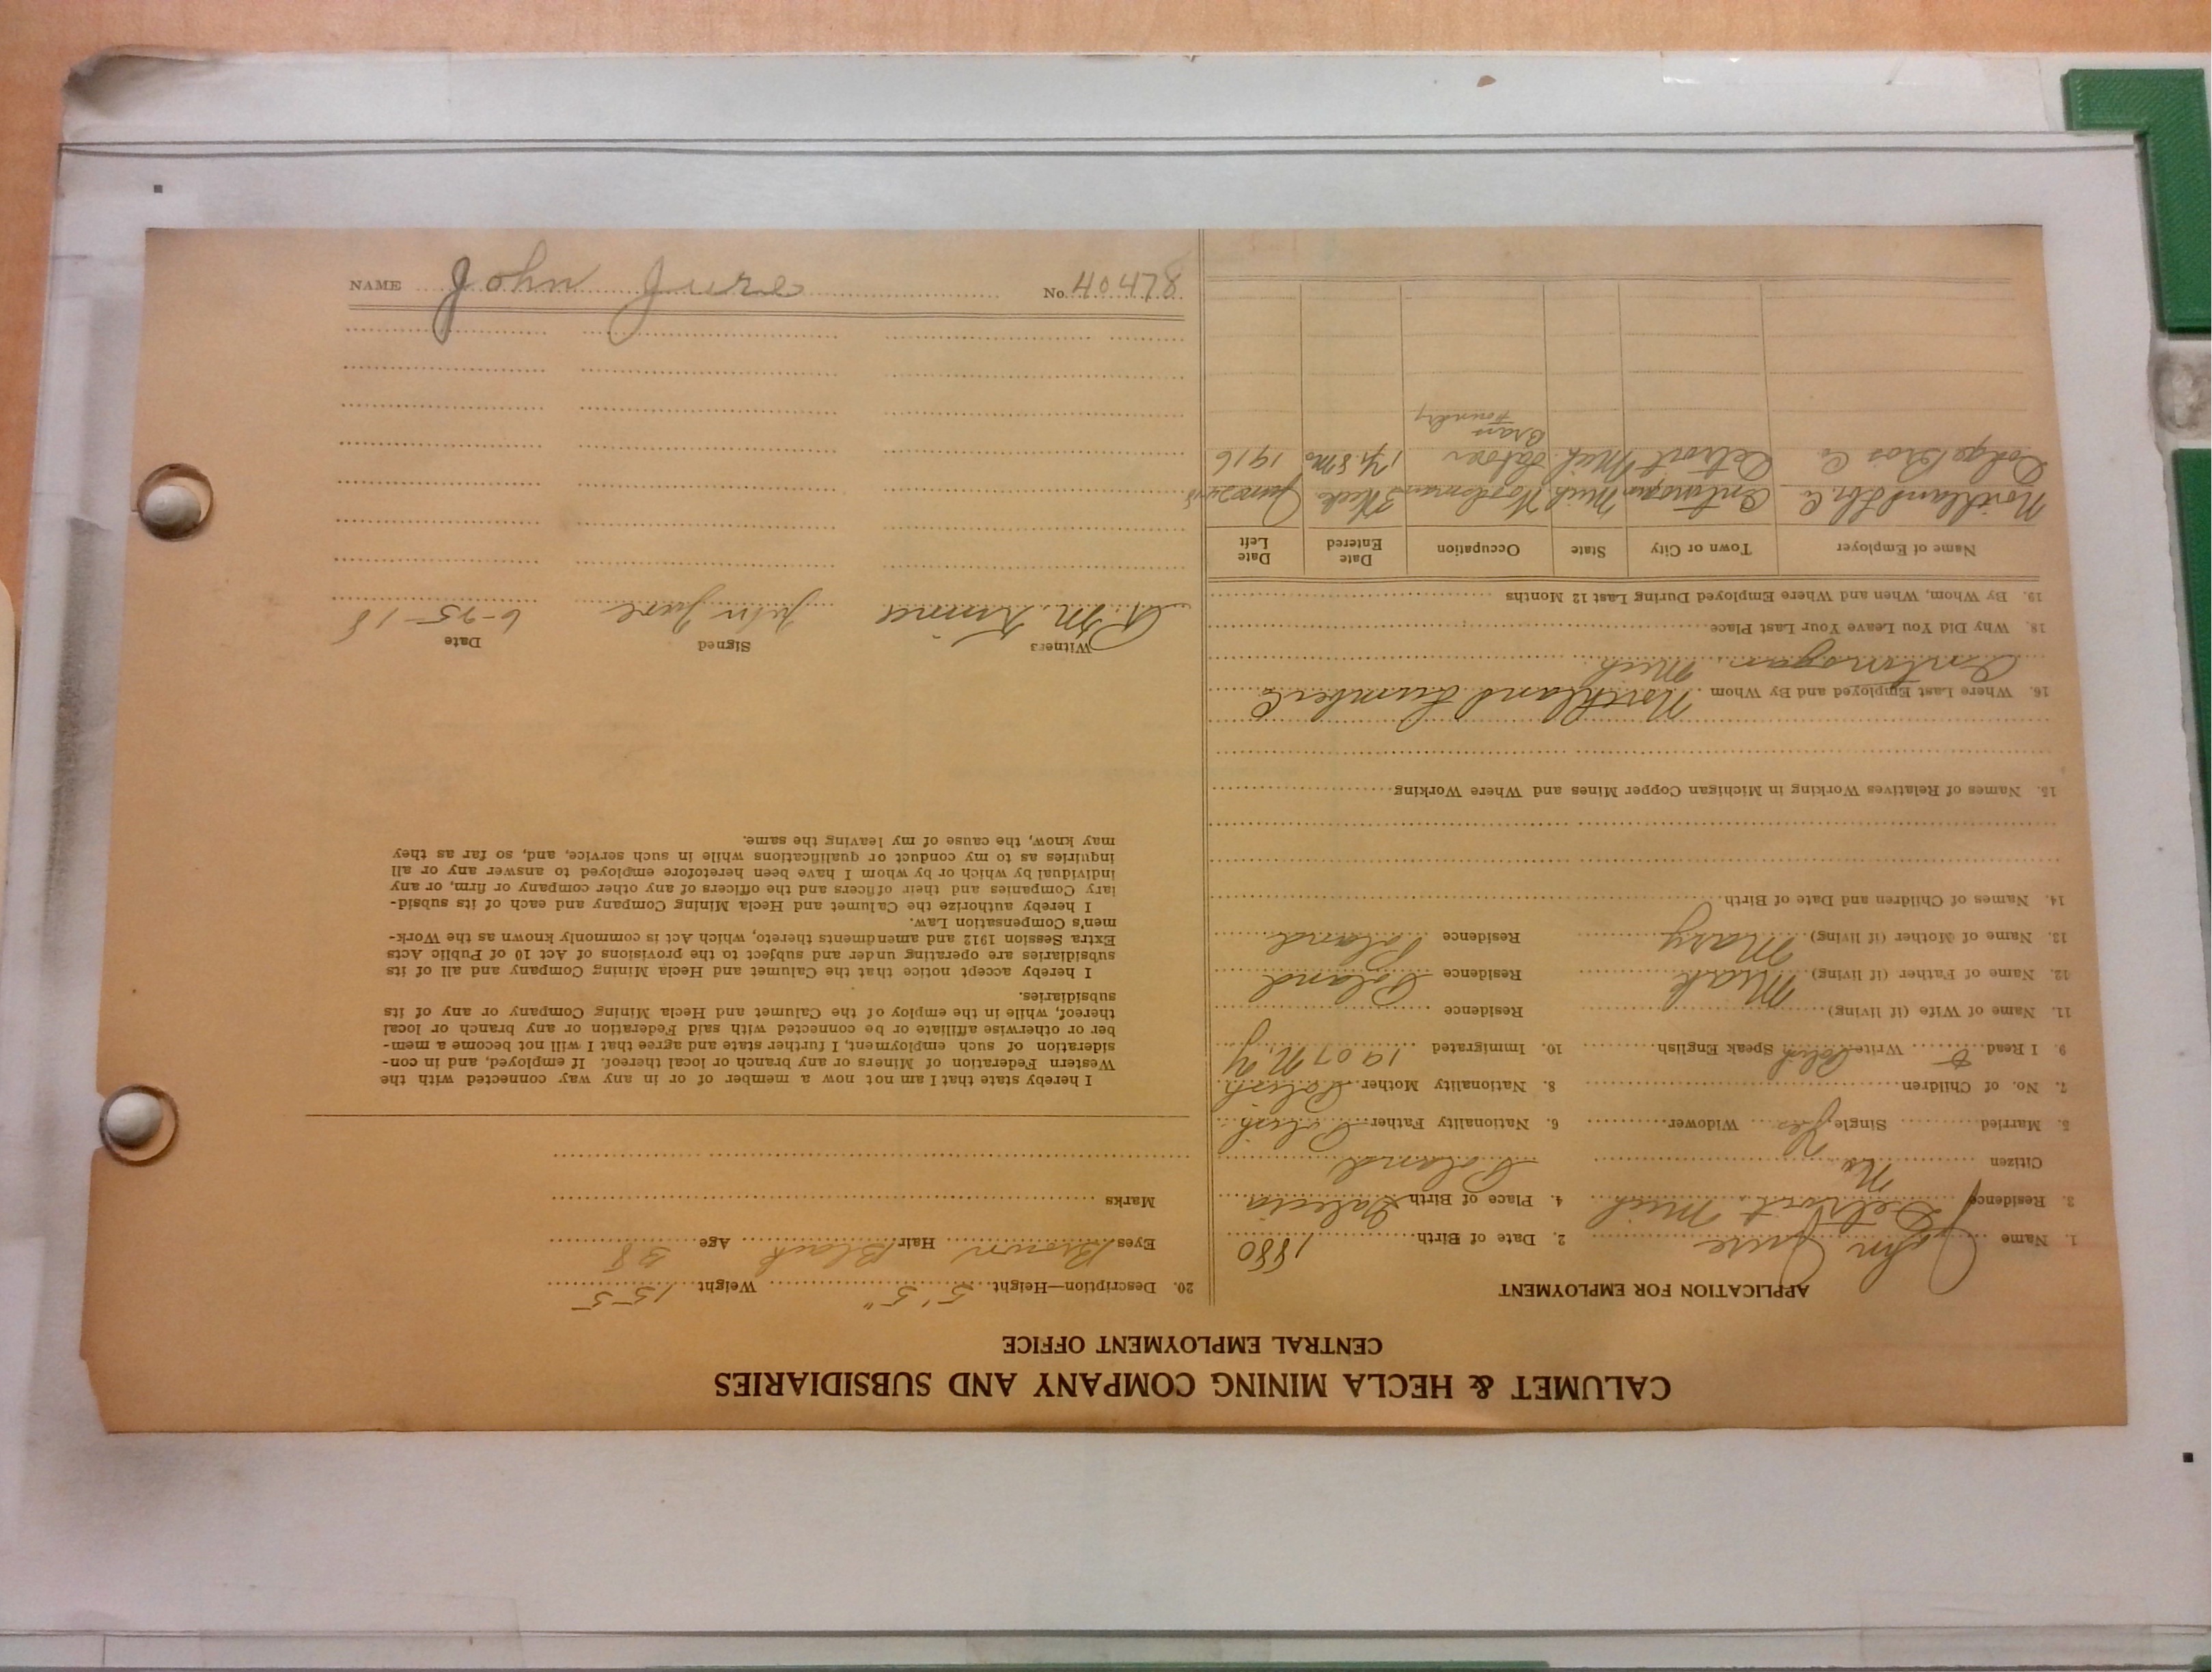 CALUMET & HECLA MINING COMPANY AND SUBSIDIARIES
CENTRAL EMPLOYMENT OFFICE
APPLICATION FOR EMPLOYMENT
1. Name John Jure 2. Date of Birth 1880
3. Residence Detroit Mich 4. Place of Birth Galecia
Citizen No Poland
5. Married Single Yes Widower 6. Nationality Father Polish
7. No. of Children 8. Nationality Mother Polish
9. I Read & Write Polish Speak English 10. Immigrated 1907 N.Y
11. Name of Wife (if living) Residence
12. Name of Father (if living) Residence Poland
13. Name of Mother (if living) Mary Residence Poland
14. Names of Children and Date of Birth
15. Names of Relatives Working in Michigan Copper Mines and Where Working
16. Where Last Employed and By Whom Northland Lumber Co
Ontonogan Mich
18. Why Did You Leave Your Last Place
19. By Whom, When and Where Employed During Last 12 Months
Name of Employer Town or City State Occupation Date Entered Date Left
Northland Lbr. Co Ontonogan Mich Woodsman 3 Weeks June 24-18
Dodge Bros Co Detroit Mich Mich. Labor 1 Yr 8 Mo 1916
Brass
Foundry
20. Description—Height 5' 5" Weight 155
Eyes Brown Hair Black Age 38
Marks
I hereby state that I am not now a member of or in any way connected with the
Western Federation of Miners or any branch or local thereof. If employed, and in con-
sideration of such employment, I further state and agree that I will not become a mem-
ber or otherwise affiliate or be connected with said Federation or any branch or local
thereof, while in the employ of the Calumet and Hecla Mining Company or any of its
subsidiaries.
I hereby accept notice that the Calumet and Hecla Mining Company and all of its
subsidiaries are operating under and subject to the provisions of Act 10 of Public Acts
Extra Session 1912 and amendments thereto, which Act is commonly known as the Work-
men's Compensation Law.
I hereby authorize the Calumet and Hecla Mining Company and each of its subsid-
iary Companies and their officers and the officers of any other company or firm, or any
individual by which or by whom I have been heretofore employed to answer any or all
inquiries as to my conduct or qualifications while in such service, and, so far as they
may know, the cause of my leaving the same.
Witness Signed Date
John Jure 6-25-18
NAME John Jure No. 40478